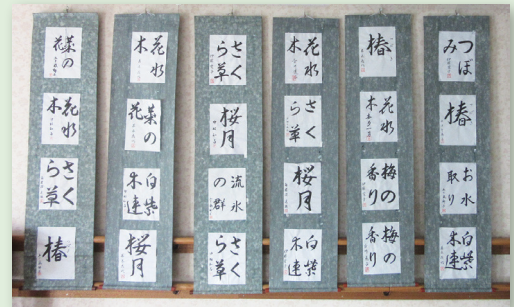 菜の
花
花水
木
さく
ら草
椿
花水
木
菜の
花
白紫
木蓮
桜月
さく
ら草
桜月
流氷
の群
さく
ら草
花水
木
さく
ら草
桜月
白紫
木蓮
椿
花水
木
梅の
香り
梅の
香り
つぼ
み
椿
お水
取り
白紫
木蓮